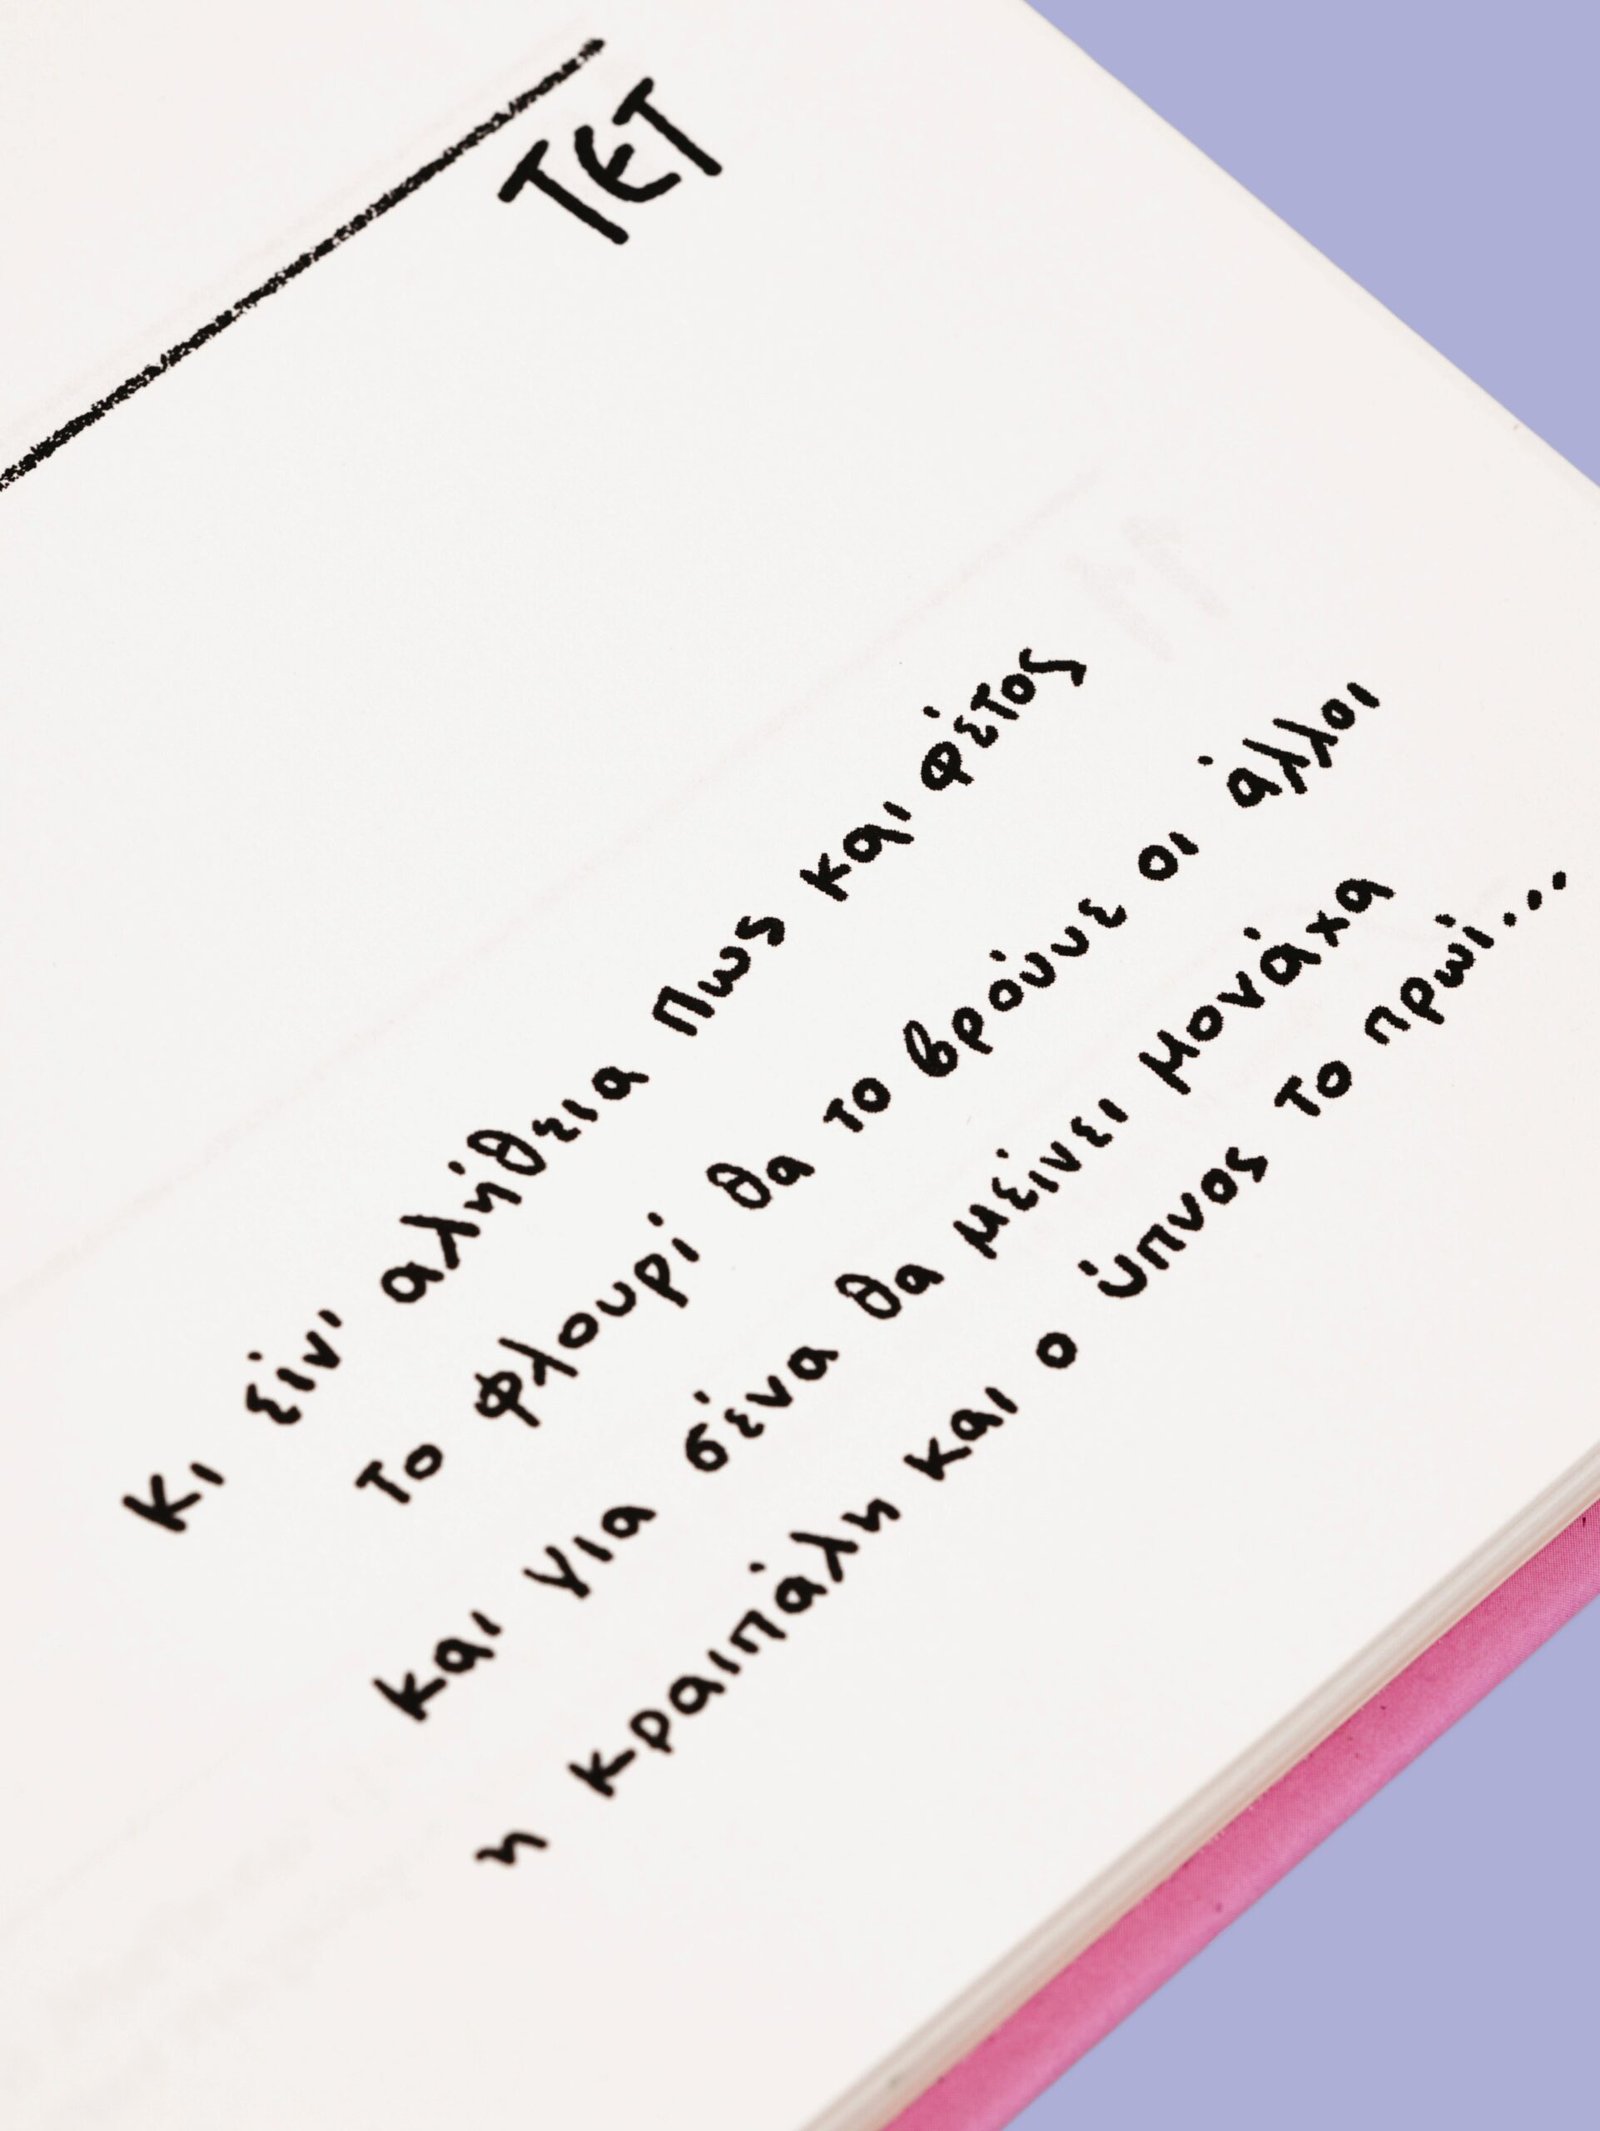 ΤΕΤ
κι είν' αλήθεια πως και φέτος
το φλουρί θα το βρούνε οι άλλοι
και για σένα θα μείνει μονάχα
η κραιπάλη και ο ύπνος το πρωί...